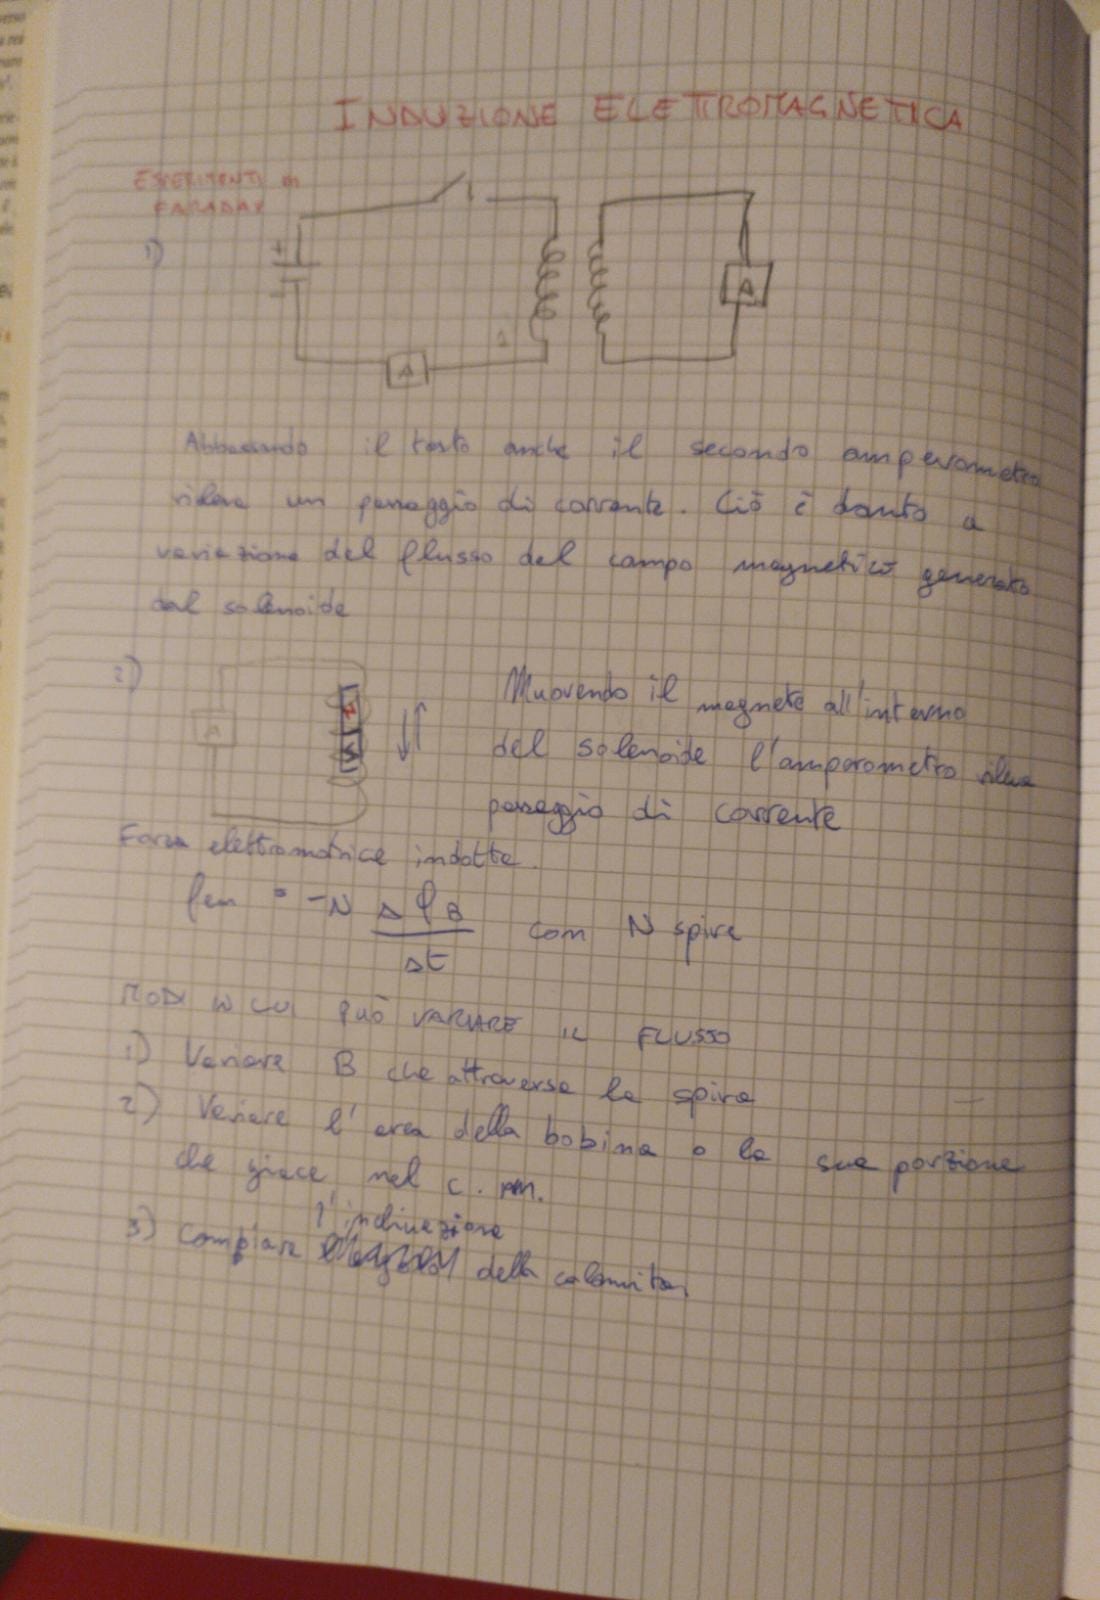 INDUZIONE ELETTROMAGNETICA
ESPERIMENTI DI
FARADAY
1)
+
-
A
A
Abbassando il tasto anche il secondo amperometro
rileva un passaggio di corrente. Ciò è dovuto a
variazione del flusso del campo magnetico generato
dal solenoide
2)
A
Muovendo il magnete all'interno
del solenoide l'amperometro rileva
passaggio di corrente
Forza elettromotrice indotta.
fem = -N ΔφB
Δt
con N spire
MODI IN CUI PUÒ VARIARE IL FLUSSO
1) Variare B che attraversa la spira
2) Variare l'area della bobina o la sua porzione
che giace nel c. m.
l'inclinazione
3) Cambiare della calamita